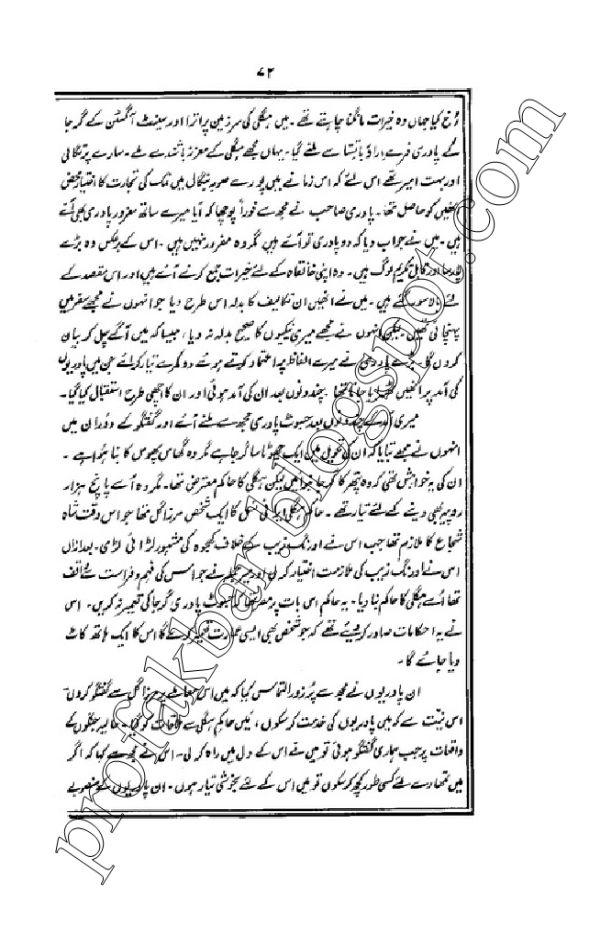 ۷۲
رُخ کیا جہاں وہ خیرات مانگنا چاہتے تھے۔ میں ہگلی کی سرزمین پر اترا اور سینٹ آگسٹن کے گرجا
کے پادری فرے راؤ باتستا سے ملنے گیا۔ یہاں مجھے ہگلی کے معزز باشندے ملے۔ سارے پرتگالی
اور بہت امیر تھے اس لئے کہ اس زمانے میں پورے صوبہ بنگال میں نمک کی تجارت کا اختیار محض
انھیں کو حاصل تھا۔ پادری صاحب نے مجھ سے فوراً پوچھا کہ آیا میرے ساتھ مفرور پادری بھی آئے
ہیں۔ میں نے جواب دیا کہ دو پادری تو آئے ہیں مگر وہ مفرور نہیں ہیں۔ اس کے برعکس وہ بڑے
پارسا اور قابل تکریم لوگ ہیں۔ وہ اپنی خانقاہ کے لئے خیرات جمع کرنے آئے ہیں اور اس مقصد کے
لئے بالاسور گئے ہیں۔ میں نے انھیں ان تکالیف کا بدلہ اس طرح دیا جو انہوں نے مجھے سفر میں
پہنچائی تھیں۔ لیکن انہوں نے مجھے میری نیکیوں کا صحیح بدلہ نہ دیا، جیسا کہ میں آگے چل کر بیان
کروں گا۔ بڑے پادری نے میرے الفاظ پر اعتماد کرتے ہوئے دو کمرے تیار کرائے جن میں پادریوں
کی آمد پر انھیں ٹھہرایا جانا تھا۔ چند دنوں بعد ان کی آمد ہوئی اور ان کا اچھی طرح استقبال کیا گیا۔
میری آمد کے چند دنوں بعد جیسوٹ پادری مجھ سے ملنے آئے اور گفتگو کے دوران میں
انہوں نے مجھے بتایا کہ ان کی تحویل میں ایک چھوٹا سا گرجا ہے مگر وہ گھاس پھوس کا بنا ہوا ہے۔
ان کی یہ خواہش تھی کہ وہ پتھر کا گرجا بنوائیں لیکن ہگلی کا حاکم معترض تھا۔ مگر وہ اسے پانچ ہزار
روپیہ بھی دینے کے لئے تیار تھے۔ حاکم ہگلی ایرانی نسل کا ایک شخص مرزا گل تھا جو اس وقت شاہ
شجاع کا ملازم تھا جب اس نے اورنگ زیب کے خلاف کھجوہ کی مشہور لڑائی لڑی۔ بعد ازاں
اس نے اورنگ زیب کی ملازمت اختیار کر لی اور میر جملہ نے جو اس کی فہم و فراست سے واقف
تھا اُسے ہگلی کا حاکم بنا دیا۔ یہ حاکم اس بات پر مصر تھا کہ جیسوٹ پادری گرجا کی تعمیر نہ کریں۔ اس
نے یہ احکامات صادر کر دیئے تھے کہ جو شخص بھی ایسی عمارت تعمیر کرے گا اس کا ایک ہاتھ کاٹ
دیا جائے گا۔
ان پادریوں نے مجھ سے پُرزور التماس کیا کہ میں اس معاملے پر مرزا گل سے گفتگو کروں۔
اس نیت سے کہ میں پادریوں کی خدمت کر سکوں، میں حاکم ہگلی سے ملاقات کو گیا۔ حالیہ جنگوں کے
واقعات پر جب ہماری گفتگو ہوئی تو میں نے اس کے دل میں راہ کر لی۔ اس نے مجھ سے کہا کہ اگر
میں تمھارے لئے کسی طور کچھ کر سکوں تو میں اس کے لئے بخوشی تیار ہوں۔ ان پادریوں کے منصوبے
profakbar.blogspot.com